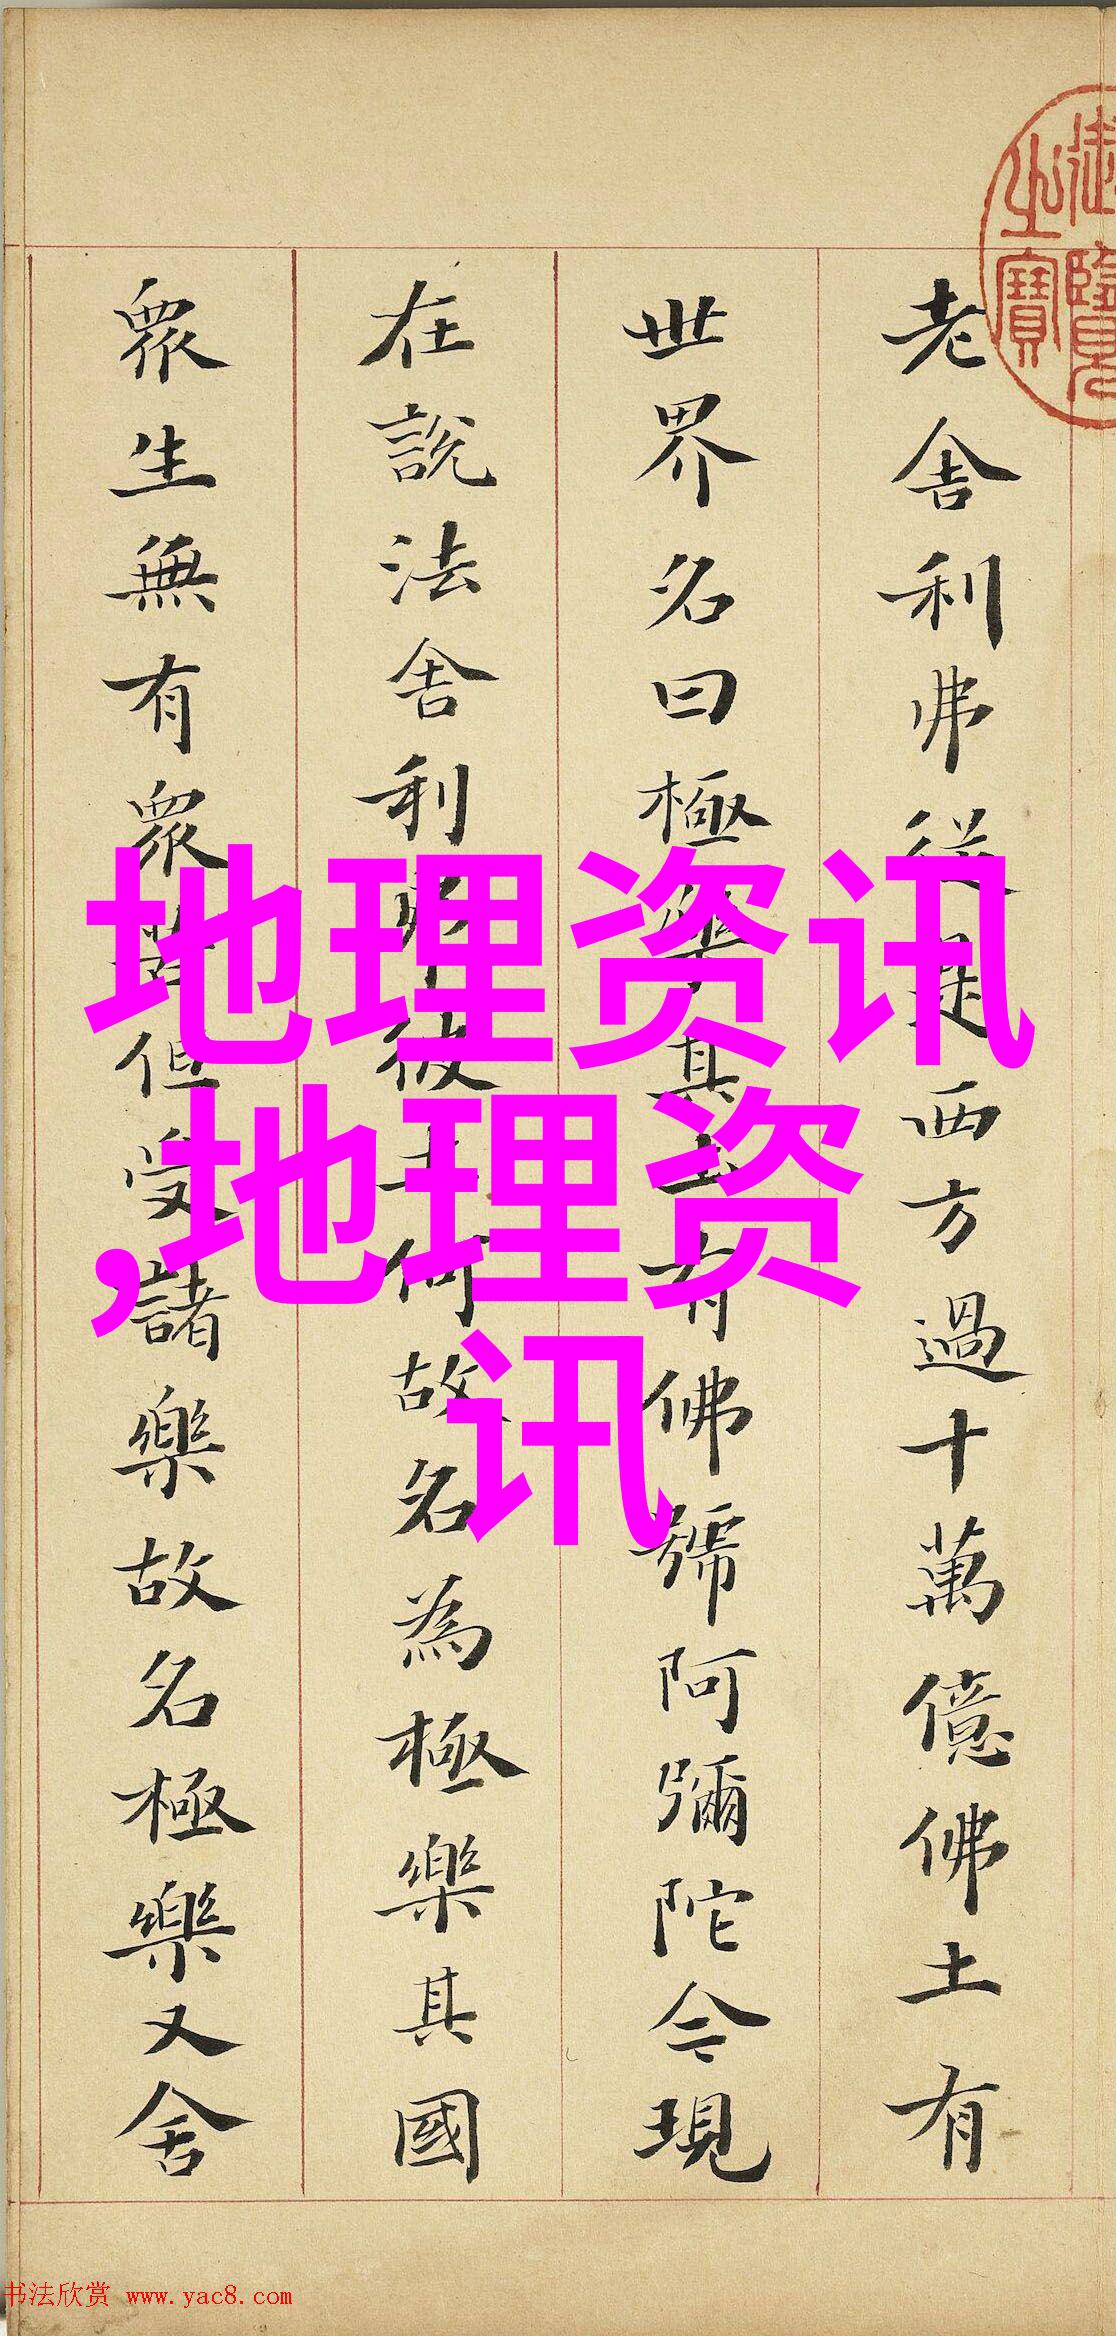 御覽之寶
老舍利弗從是西方過十萬億佛土有
世界名曰極樂其土有佛號阿彌陀今現
在說法舍利弗彼土何故名為極樂其國
眾生無有眾苦但受諸樂故名極樂又舍
地理资讯
,地理资
讯
书法欣赏 www.yac8.com